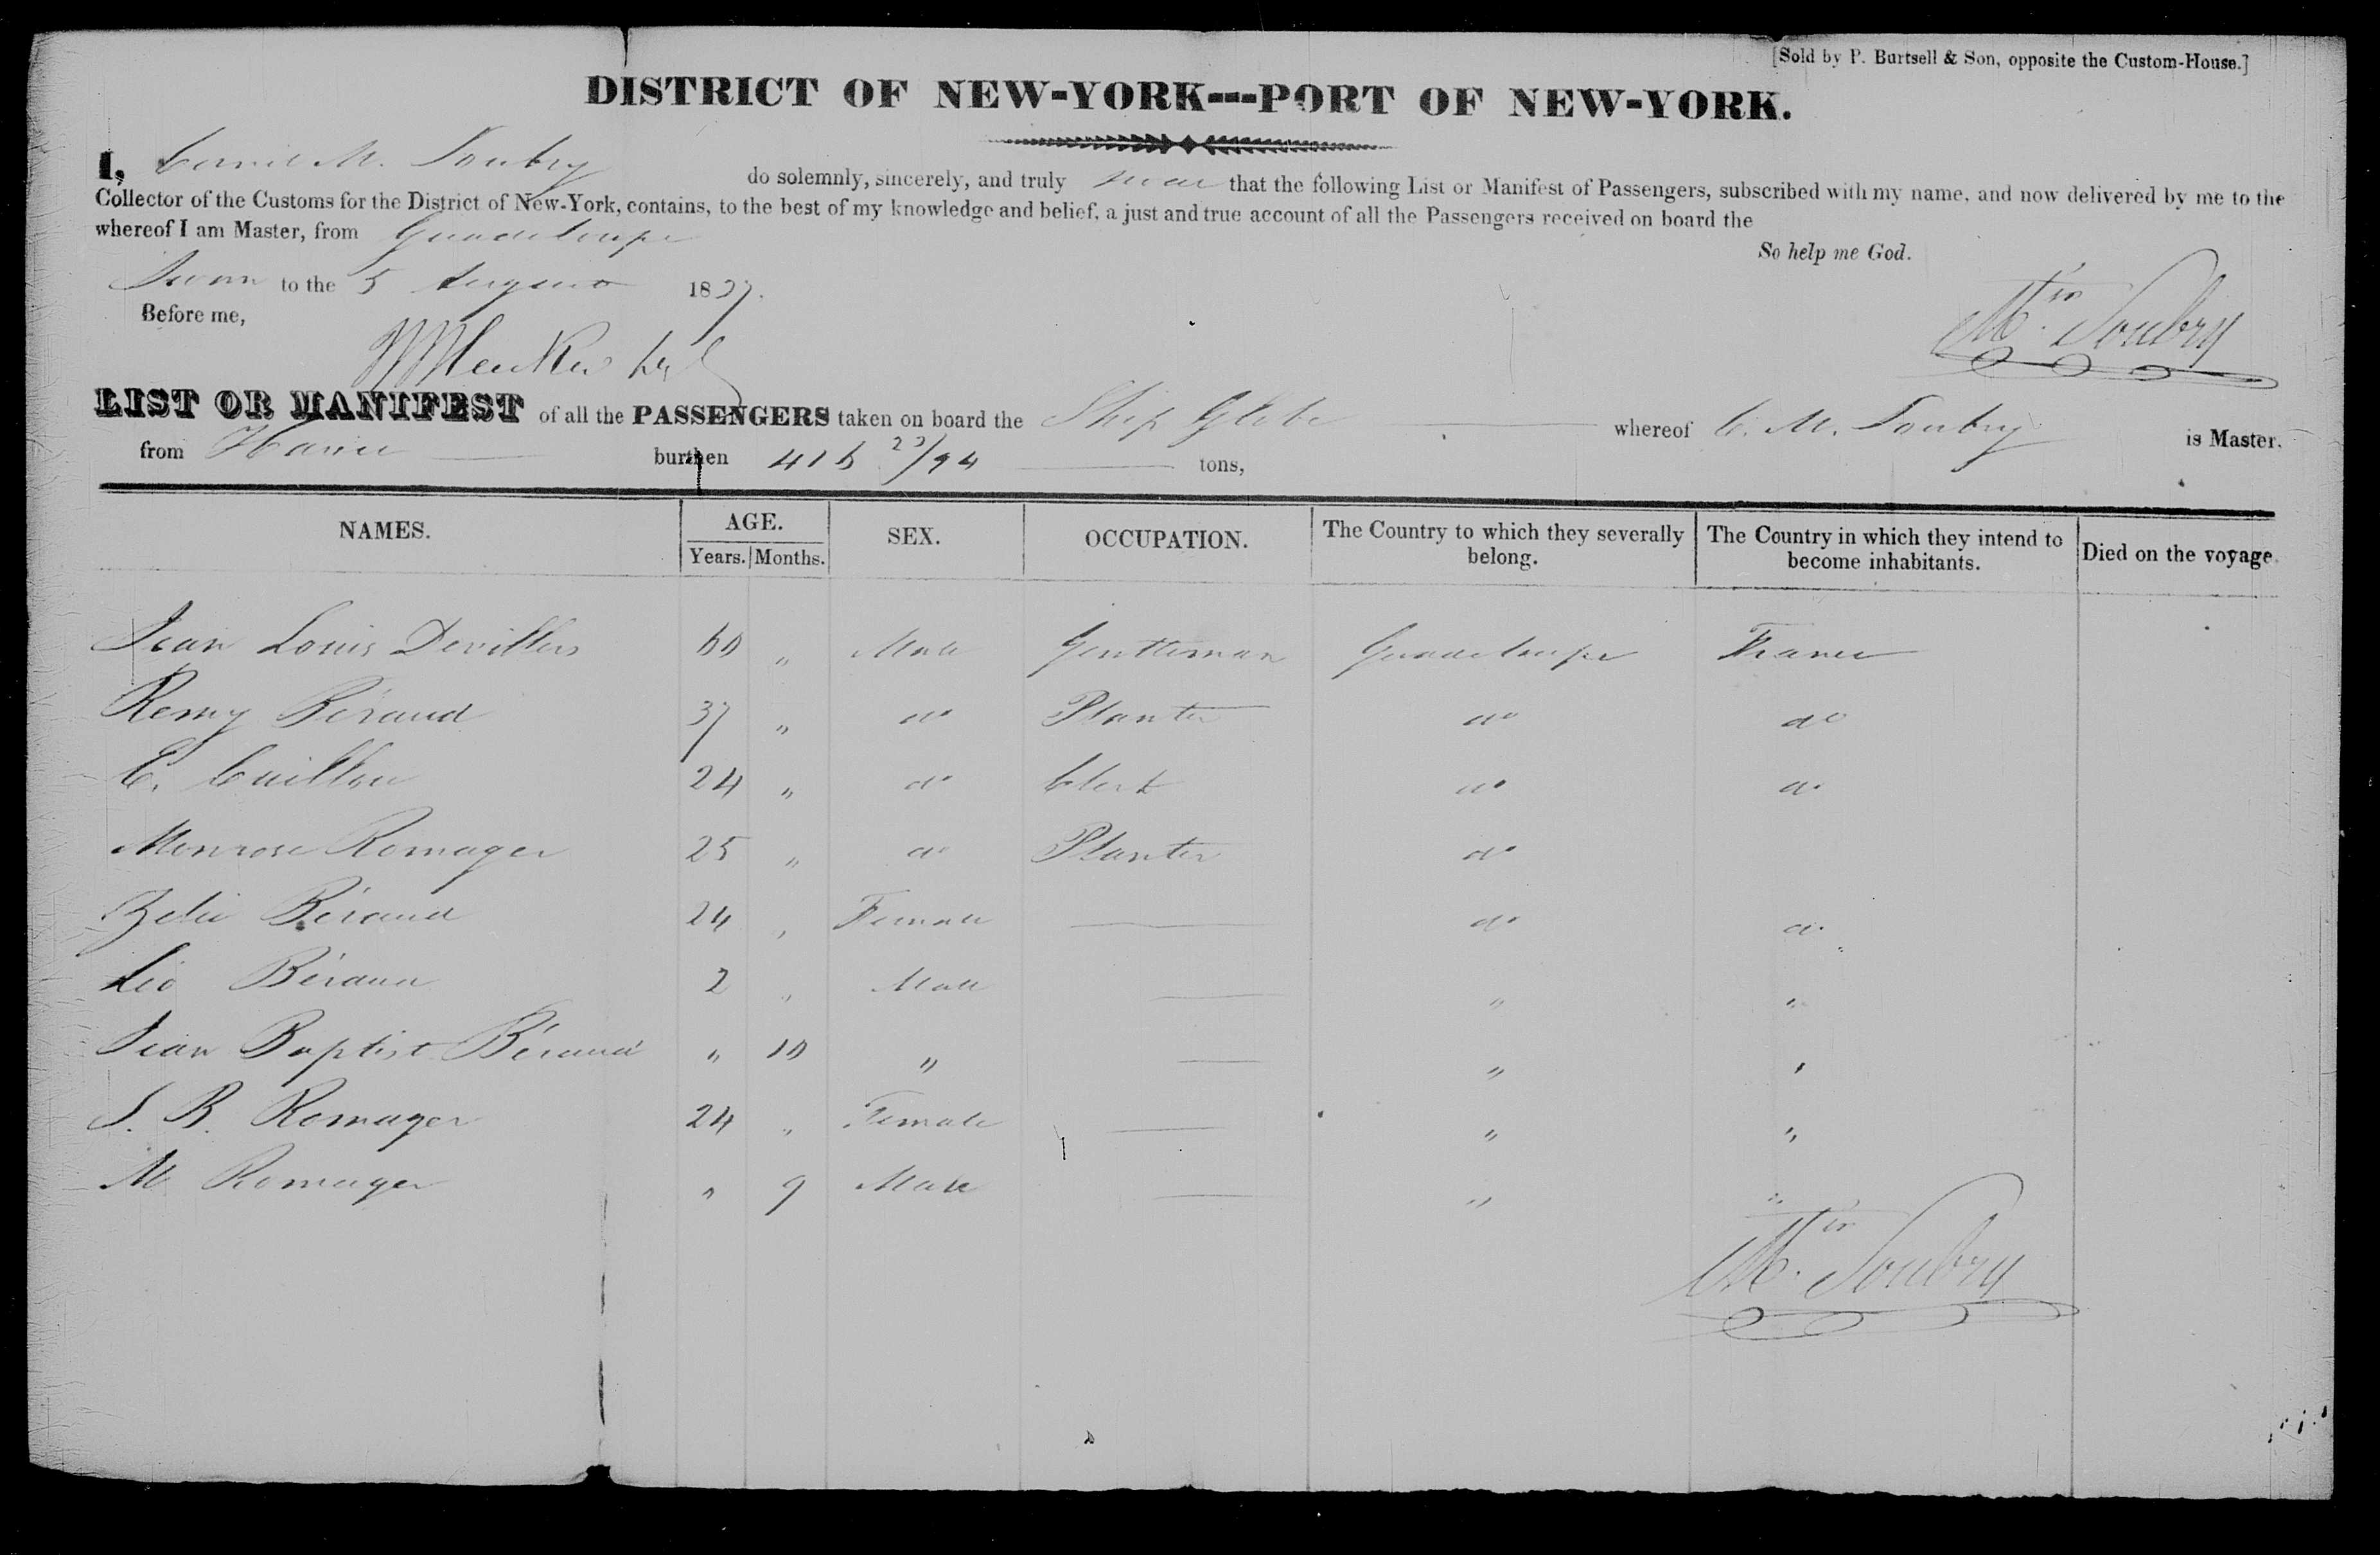 [Sold by P. Burtsell & Son, opposite the Custom-House.]
DISTRICT OF NEW-YORK---PORT OF NEW-YORK.
I, M. Soubry do solemnly, sincerely, and truly swear that the following List or Manifest of Passengers, subscribed with my name, and now delivered by me to the
Collector of the Customs for the District of New-York, contains, to the best of my knowledge and belief, a just and true account of all the Passengers received on board the
whereof I am Master, from Guadeloupe
So help me God.
Sworn to the 5 August 1837.
Before me,
Mtin Soubry
LIST OR MANIFEST of all the PASSENGERS taken on board the Ship Globe whereof C. M. Soubry is Master.
from Havre burthen 416 23/94 tons,
NAMES. AGE. SEX. OCCUPATION. The Country to which they severally belong. The Country in which they intend to become inhabitants. Died on the voyage.
Years. Months.
Jean Louis Devillers 60 " Male Gentleman Guadeloupe France
Remy Béraud 37 " do Planter do do
C. Cuillou 24 " do Clerk do do
Monrose Romager 25 " do Planter do
Zelie Béraud 24 " Female — do do
Léo Béraud 2 " Male — " "
Jean Baptist Béraud " 10 " — " "
J. B. Romager 24 " Female — " "
M Romager " 9 Male — " "
Mtin Soubry